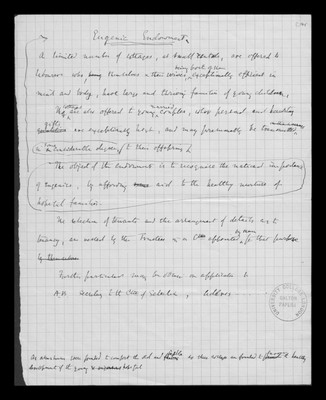 Eugenic Endowment.
A limited number of cottages, at small rentals, are offered to
many parts of whom
labourers who, themselves or their wives, exceptionally efficient in
mind and body, have large and thriving families of young children.
cottages married
They are also offered to young couples, whose personal and hereditary
gifts
are exceptionally high, and may presumably be transmitted
in considerable degree to their offspring.
The object of the endowment is to recognise the national importance
of eugenics, by affording aid to the healthy nurture of
hopeful families.
The selection of tenants and the arrangement of details as to
tenancy, are vested by the Trustees in a Cttee appointed by them for that purpose
by themselves
Further particulars may be obtained on application to
A.B. Secretary to the Cttee of Selection, address
UNIVERSITY COLLEGE
GALTON
PAPERS
As almshouses were founded to comfort the old and feeble so these cottages are founded to the healthy
development of the young & hopeful